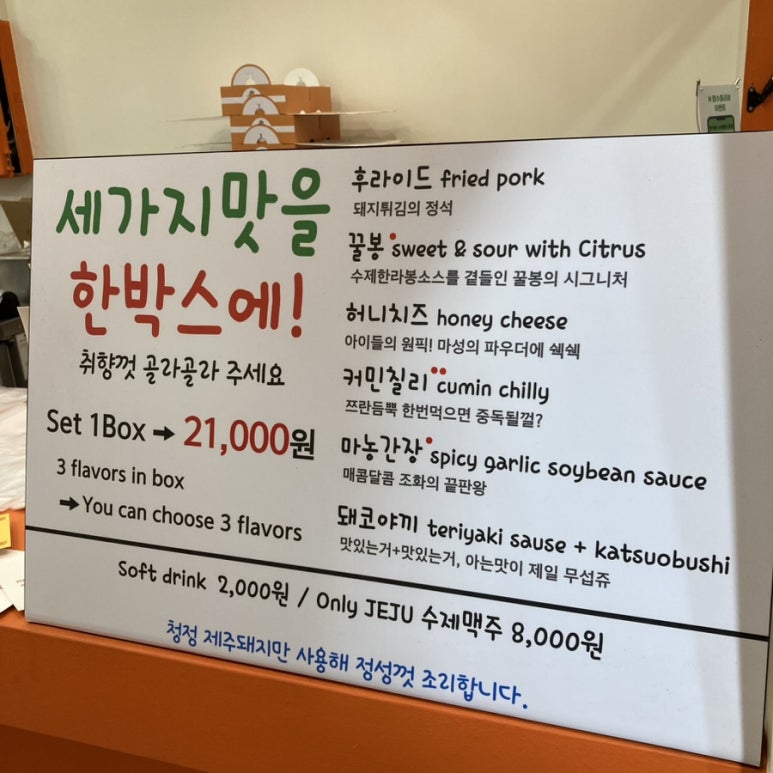 세가지맛을
한박스에!
취향껏 골라골라 주세요
Set 1Box → 21,000원
3 flavors in box
→You can choose 3 flavors
후라이드 fried pork
돼지튀김의 정석
꿀봉 sweet & sour with Citrus
수제한라봉소스를 곁들인 꿀봉의 시그니처
허니치즈 honey cheese
아이들의 원픽! 마성의 파우더에 쉑쉑
커민칠리 cumin chilly
쯔란듬뿍 한번먹으면 중독될껄?
마농간장 spicy garlic soybean sauce
매콤달콤 조화의 끝판왕
돼코야끼 teriyaki sause + katsuobushi
맛있는거+맛있는거, 아는맛이 제일 무섭쥬
Soft drink 2,000원 / Only JEJU 수제맥주 8,000원
청정 제주돼지만 사용해 정성껏 조리합니다.